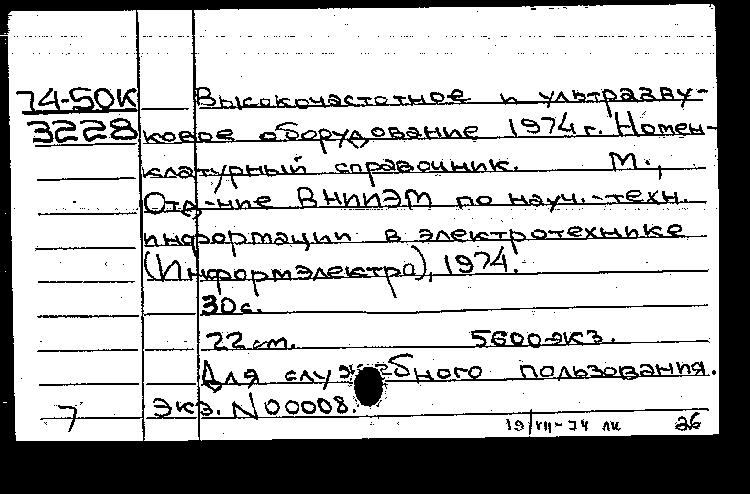 74-50К Высокочастотное и ультразву-
3228 ковое оборудование 1974 г. Номен-
клатурный справочник. М.,
Отд-ние ВНИИЭМ по науч.-техн.
информации в электротехнике
(Информэлектро), 1974.
30с.
22 см. 5600 экз.
Для служебного пользования.
7 Экз. N 00008.
19/VII-74 лк 26